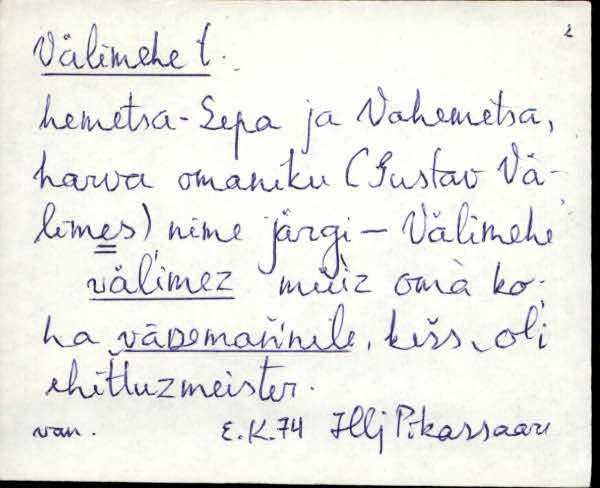 2
Välimehe t.
hemetsa-Sepa ja Vahemetsa,
harva omaniku (Gustav Vä-
limes) nime järgi – Välimehe
välimez müiz omà ko-
ha väDemaňnile, kešs, oli
ehitluzmeister.
van. E.K.74 Hlj Pikassaar